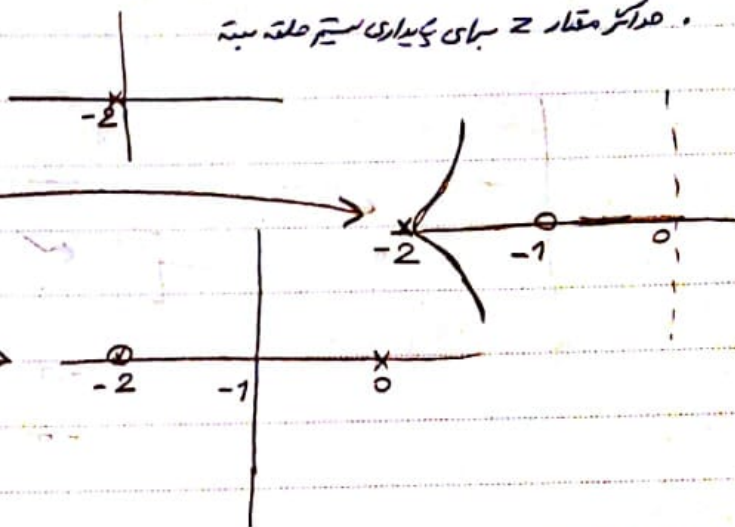 . حداکثر مقدار z برای پایداری سیستم حلقه بسته
-2
-2 -1 0
-2 -1 0